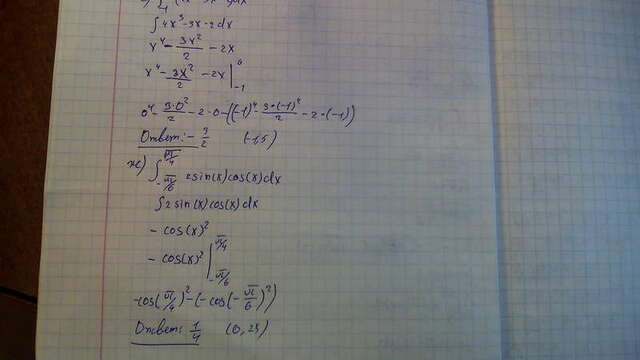 ∫4x³-3x-2dx
x⁴-3x²/2-2x
x⁴-3x²/2-2x|⁰₋₁
0⁴-3·0²/2-2·0-((-1)⁴-3·(-1)²/2-2·(-1))
Ответ:-3/2 (-1,5)
ж) ∫ π/4 -π/6 2sin(x)cos(x)dx
∫2sin(x)cos(x)dx
-cos(x)²
-cos(x)²| π/4 -π/6
-cos(π/4)²-(-cos(-π/6)²)
Ответ: 1/4 (0,25)